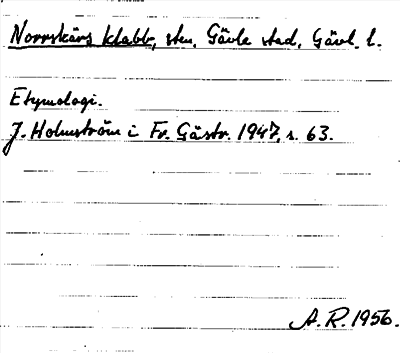 Norrskärs klabb, sten, Gävle stad, Gävl. l.
Etymologi.
J. Holmström i Fr. Gästr. 1947, s. 63.
A. R. 1956.